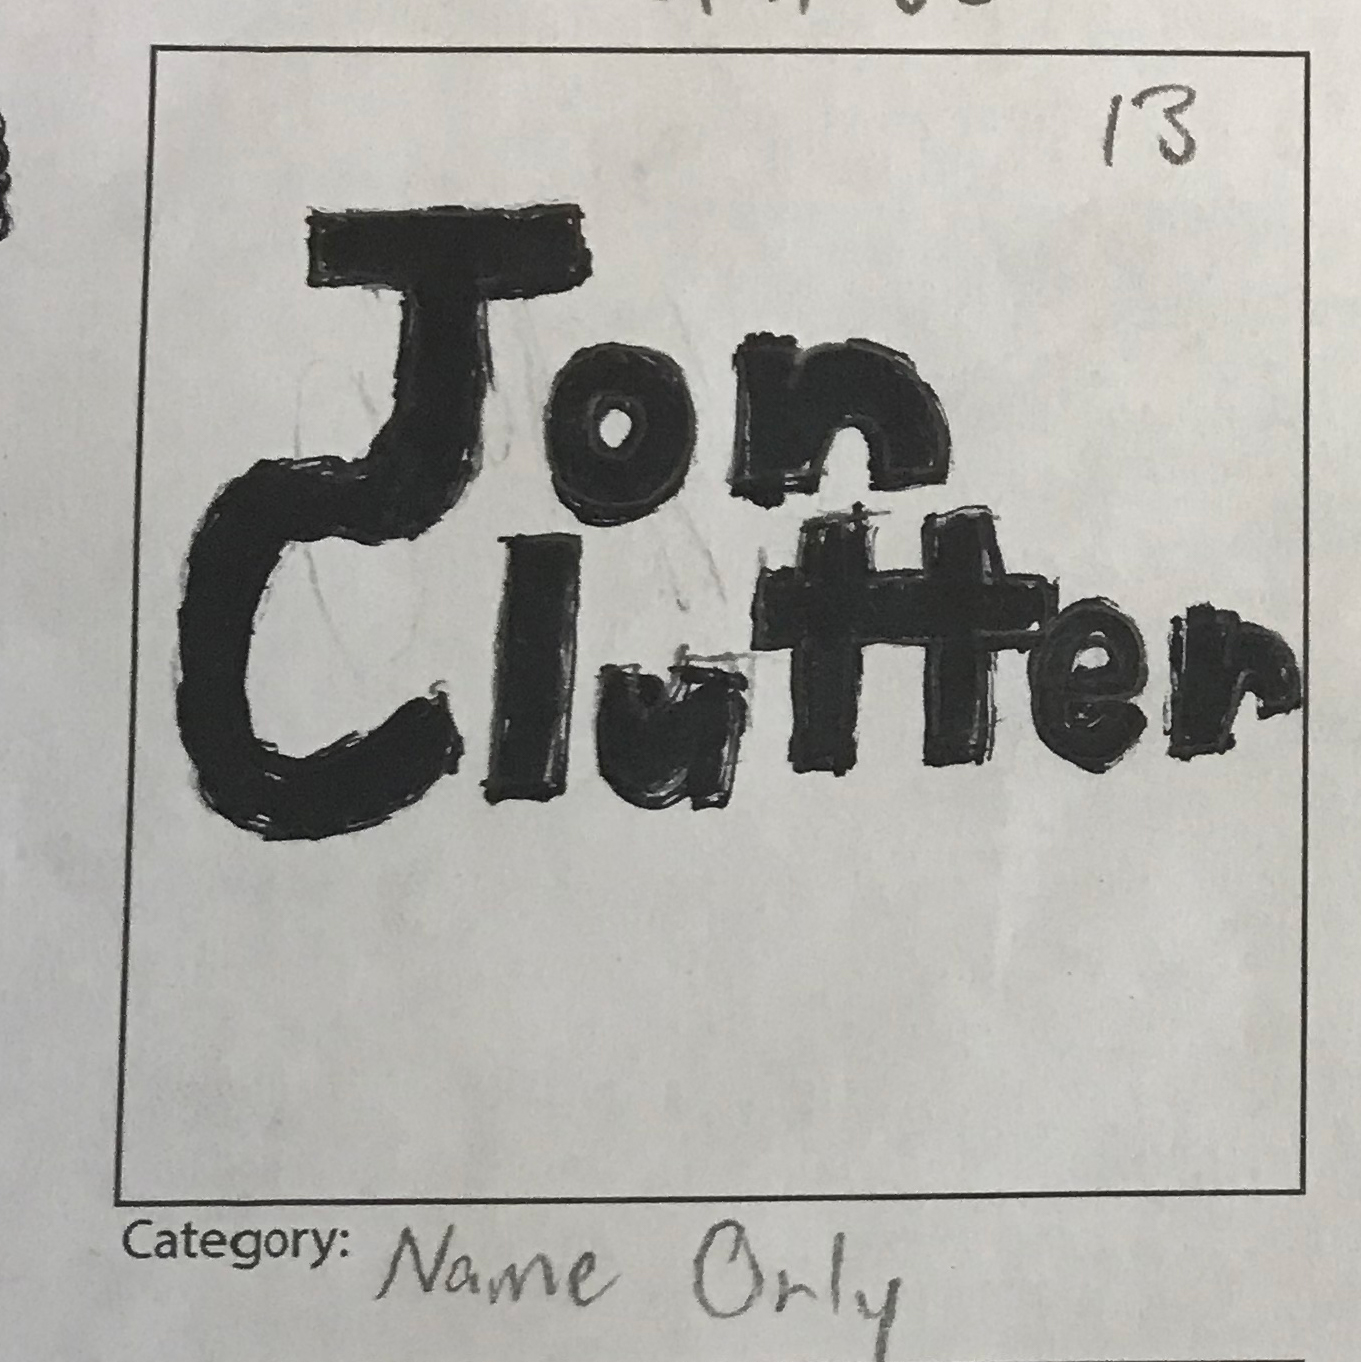 13
Jon
Clutter
Category: Name Only